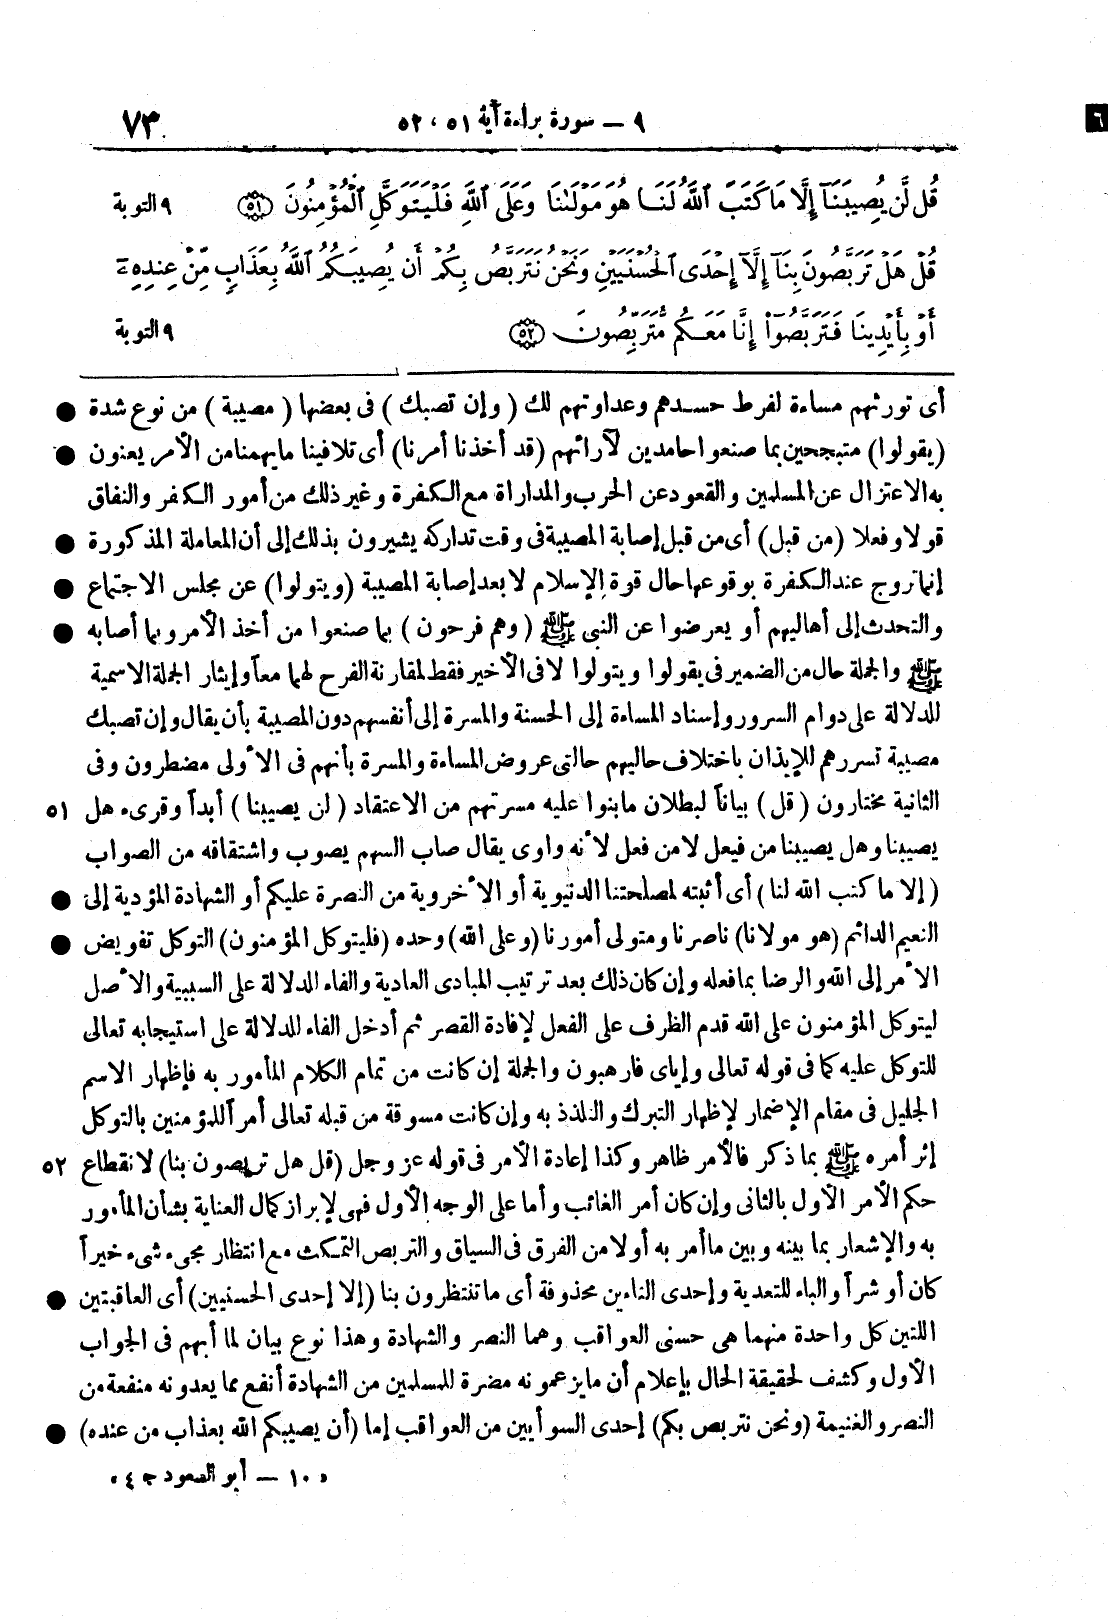 ٩ — سورة براءة آية ٥١ ، ٥٢ ٧٣
٦
قُل لَّن يُصِيبَنَآ إِلَّا مَا كَتَبَ ٱللَّهُ لَنَا هُوَ مَوْلَىٰنَا وَعَلَى ٱللَّهِ فَلْيَتَوَكَّلِ ٱلْمُؤْمِنُونَ ﴿٥١﴾ ٩ التوبة
قُلْ هَلْ تَرَبَّصُونَ بِنَآ إِلَّآ إِحْدَى ٱلْحُسْنَيَيْنِ وَنَحْنُ نَتَرَبَّصُ بِكُمْ أَن يُصِيبَكُمُ ٱللَّهُ بِعَذَابٍ مِّنْ عِندِهِۦٓ
أَوْ بِأَيْدِينَا فَتَرَبَّصُوٓا۟ إِنَّا مَعَكُم مُّتَرَبِّصُونَ ﴿٥٢﴾ ٩ التوبة
أى تورثهم مساءة لفرط حسدهم وعداوتهم لك ( وإن تصبك ) فى بعضها ( مصيبة ) من نوع شدة ●
(يقولوا) متبجحين بما صنعوا حامدين لآرائهم (قد أخذنا أمرنا) أى تلافينا ما يهمنا من الأمر يعنون ●
به الاعتزال عن المسلمين والقعود عن الحرب والمداراة مع الكفرة وغير ذلك من أمور الكفر والنفاق
قولا وفعلا (من قبل) أى من قبل إصابة المصيبة فى وقت تداركه يشيرون بذلك إلى أن المعاملة المذكورة ●
إنما تروج عند الكفرة بوقوعها حال قوة الإسلام لا بعد إصابة المصيبة (ويتولوا) عن مجلس الاجتماع ●
والتحدث إلى أهاليهم أو يعرضوا عن النبى ﷺ ( وهم فرحون ) بما صنعوا من أخذ الأمر وبما أصابه ●
ﷺ والجملة حال من الضمير فى يقولوا ويتولوا لا فى الأخير فقط لمقارنة الفرح لهما معاً وإيثار الجملة الاسمية
للدلالة على دوام السرور وإسناد المساءة إلى الحسنة والمسرة إلى أنفسهم دون المصيبة بأن يقال وإن تصبك
مصيبة تسررهم للإيذان باختلاف حاليهم حالتى عروض المساءة والمسرة بأنهم فى الأولى مضطرون وفى
الثانية مختارون ( قل ) بياناً لبطلان ما بنوا عليه مسرتهم من الاعتقاد ( لن يصيبنا ) أبداً وقرىء هل ٥١
يصيبنا وهل يصيبنا من فيعل لا من فعل لأنه واوى يقال صاب السهم يصوب واشتقاقه من الصواب
( إلا ما كتب الله لنا ) أى أثبته لمصلحتنا الدنيوية أو الأخروية من النصرة عليكم أو الشهادة المؤدية إلى ●
النعيم الدائم (هو مولانا) ناصرنا ومتولى أمورنا (وعلى الله) وحده (فليتوكل المؤمنون) التوكل تفويض ●
الأمر إلى الله والرضا بما فعله وإن كان ذلك بعد ترتيب المبادى العادية والفاء للدلالة على السببية والأصل
ليتوكل المؤمنون على الله قدم الظرف على الفعل لإفادة القصر ثم أدخل الفاء للدلالة على استيجابه تعالى
للتوكل عليه كما فى قوله تعالى وإياى فارهبون والجملة إن كانت من تمام الكلام المأمور به فإظهار الاسم
الجليل فى مقام الإضمار لإظهار التبرك والتلذذ به وإن كانت مسوقة من قبله تعالى أمراً للمؤمنين بالتوكل
إثر أمره ﷺ بما ذكر فالأمر ظاهر وكذا إعادة الأمر فى قوله عز وجل (قل هل تربصون بنا) لانقطاع ٥٢
حكم الأمر الأول بالثانى وإن كان أمر الغائب وأما على الوجه الأول فهى لإبراز كمال العناية بشأن المأمور
به والإشعار بما بينه وبين ما أمر به أولا من الفرق فى السياق والتربص التمكث مع انتظار مجىء شىء خيراً
كان أو شراً والباء للتعدية وإحدى التاءين محذوفة أى ما تنتظرون بنا (إلا إحدى الحسنيين) أى العاقبتين ●
اللتين كل واحدة منهما هى حسنى العواقب وهما النصر والشهادة وهذا نوع بيان لما أبهم فى الجواب
الأول وكشف لحقيقة الحال بإعلام أن ما يزعمونه مضرة للمسلمين من الشهادة أنفع مما يعدونه منفعة من
النصر والغنيمة (ونحن نتربص بكم) إحدى السوأيين من العواقب إما (أن يصيبكم الله بعذاب من عنده) ●
« ١٠ — أبو السعود ج ٤ »